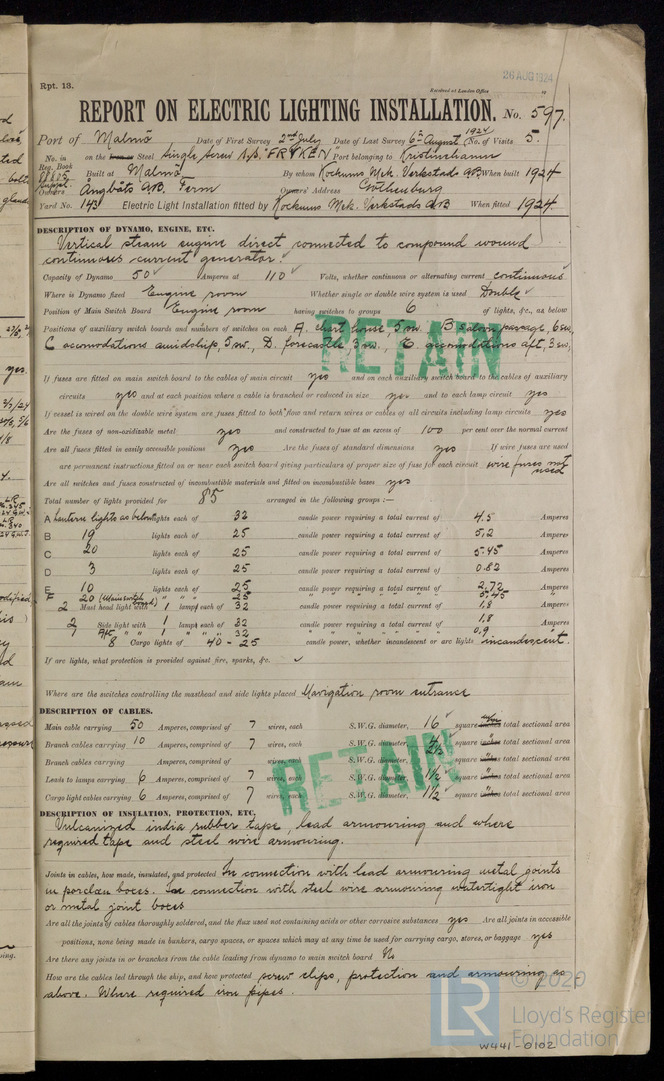 26 AUG 1924
Rpt. 13.
Received at London Office
REPORT ON ELECTRIC LIGHTING INSTALLATION. No. 597.
Port of Malmö Date of First Survey 2nd July Date of Last Survey 6th August 1924 No. of Visits 5.
No. in Reg. Book on the Steel Single Screw S.S. "FRYKEN" Port belonging to Kristinehamn
Built at Malmö By whom Kockums Mek. Verkstads A/B When built 1924
Owners Ångbåts A/B. Ferm Owners' Address Gothenburg
Yard No. 143 Electric Light Installation fitted by Kockums Mek. Verkstads A/B When fitted 1924.
DESCRIPTION OF DYNAMO, ENGINE, ETC.
Vertical steam engine direct connected to compound wound
continuous current generator.
Capacity of Dynamo 50 Amperes at 110 Volts, whether continuous or alternating current continuous
Where is Dynamo fixed Engine room Whether single or double wire system is used Double
Position of Main Switch Board Engine room having switches to groups 6 of lights, &c., as below
Positions of auxiliary switch boards and numbers of switches on each A. chart house, 5 sw. B saloon passage, 6 sw,
C accomodations amidship, 5 sw., D. forecastle, 3 sw., E. accomodations aft, 3 sw,
RETAIN
If fuses are fitted on main switch board to the cables of main circuit yes and on each auxiliary switch board to the cables of auxiliary
circuits yes and at each position where a cable is branched or reduced in size yes and to each lamp circuit yes
If vessel is wired on the double wire system are fuses fitted to both flow and return wires or cables of all circuits including lamp circuits yes
Are the fuses of non-oxidizable metal yes and constructed to fuse at an excess of 100 per cent over the normal current
Are all fuses fitted in easily accessible positions yes Are the fuses of standard dimensions yes If wire fuses are used
are permanent instructions fitted on or near each switch board giving particulars of proper size of fuse for each circuit wire fuses not used
Are all switches and fuses constructed of incombustible materials and fitted on incombustible bases yes
Total number of lights provided for 85 arranged in the following groups:—
A hauterne lights as below lights each of 32 candle power requiring a total current of 4.5 Amperes
B 19 lights each of 25 candle power requiring a total current of 5,2 Amperes
C 20 lights each of 25 candle power requiring a total current of 5.45 Amperes
D 3 lights each of 25 candle power requiring a total current of 0.82 Amperes
E 10 lights each of 25 candle power requiring a total current of 2,72 Amperes
F 20 (Main switch board) " " 25 " " " " " 5,45 "
2 Mast head light with 1 lamp each of 32 candle power requiring a total current of 1,8 Amperes
2 Side light with 1 lamp each of 32 candle power requiring a total current of 1,8 Amperes
1 Aft " " 1 " " " 32 " " " " " 0.9
8 Cargo lights of 40 - 25 candle power, whether incandescent or arc lights incandescent.
If arc lights, what protection is provided against fire, sparks, &c.
Where are the switches controlling the masthead and side lights placed Navigation room entrance
DESCRIPTION OF CABLES.
Main cable carrying 50 Amperes, comprised of 7 wires, each S.W.G. diameter, 16 square total sectional area
Branch cables carrying 10 Amperes, comprised of 7 wires, each S.W.G. diameter, 2½ square inches total sectional area
Branch cables carrying Amperes, comprised of wires, each S.W.G. diameter, square inches total sectional area
Leads to lamps carrying 6 Amperes, comprised of 7 wires, each S.W.G. diameter, 1½ square inches total sectional area
Cargo light cables carrying 6 Amperes, comprised of 7 wires, each S.W.G. diameter, 1½ square inches total sectional area
RETAIN
DESCRIPTION OF INSULATION, PROTECTION, ETC.
Vulcanized india rubber tape, lead armouring and where
required tape and steel wire armouring.
Joints in cables, how made, insulated, and protected In connection with lead armouring metal joints
in porclan boces. In connection with steel wire armouring watertight iron
or metal joint boces
Are all the joints of cables thoroughly soldered, and the flux used not containing acids or other corrosive substances yes Are all joints in accessible
positions, none being made in bunkers, cargo spaces, or spaces which may at any time be used for carrying cargo, stores, or baggage yes
Are there any joints in or branches from the cable leading from dynamo to main switch board No
How are the cables led through the ship, and how protected screw clips, protection and armouring as
above. Where required iron pipes.
© 2020
LR
Lloyd's Register
Foundation
W441-0102